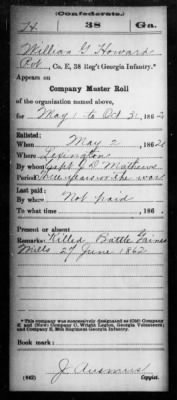 (Confederate.)
H. 38 Ga.
William G Howard
Pvt, Co. E, 38 Reg't Georgia Infantry.*
Appears on
Company Muster Roll
of the organization named above,
for May 1 to Oct 31, 1862
Enlisted:
When May 2, 1862
Where Lexington
By whom Capt J D Mathews
Period Three years or the war
Last paid:
By whom Not paid
To what time , 186 .
Present or absent
Remarks: Killed Battle Gaines
Mills 27 June 1862
*This company was successively designated as (Old) Company
E and (New) Company C, Wright Legion, Georgia Volunteers;
and Company E, 38th Regiment Georgia Infantry.
Book mark:
(642) Copyist.